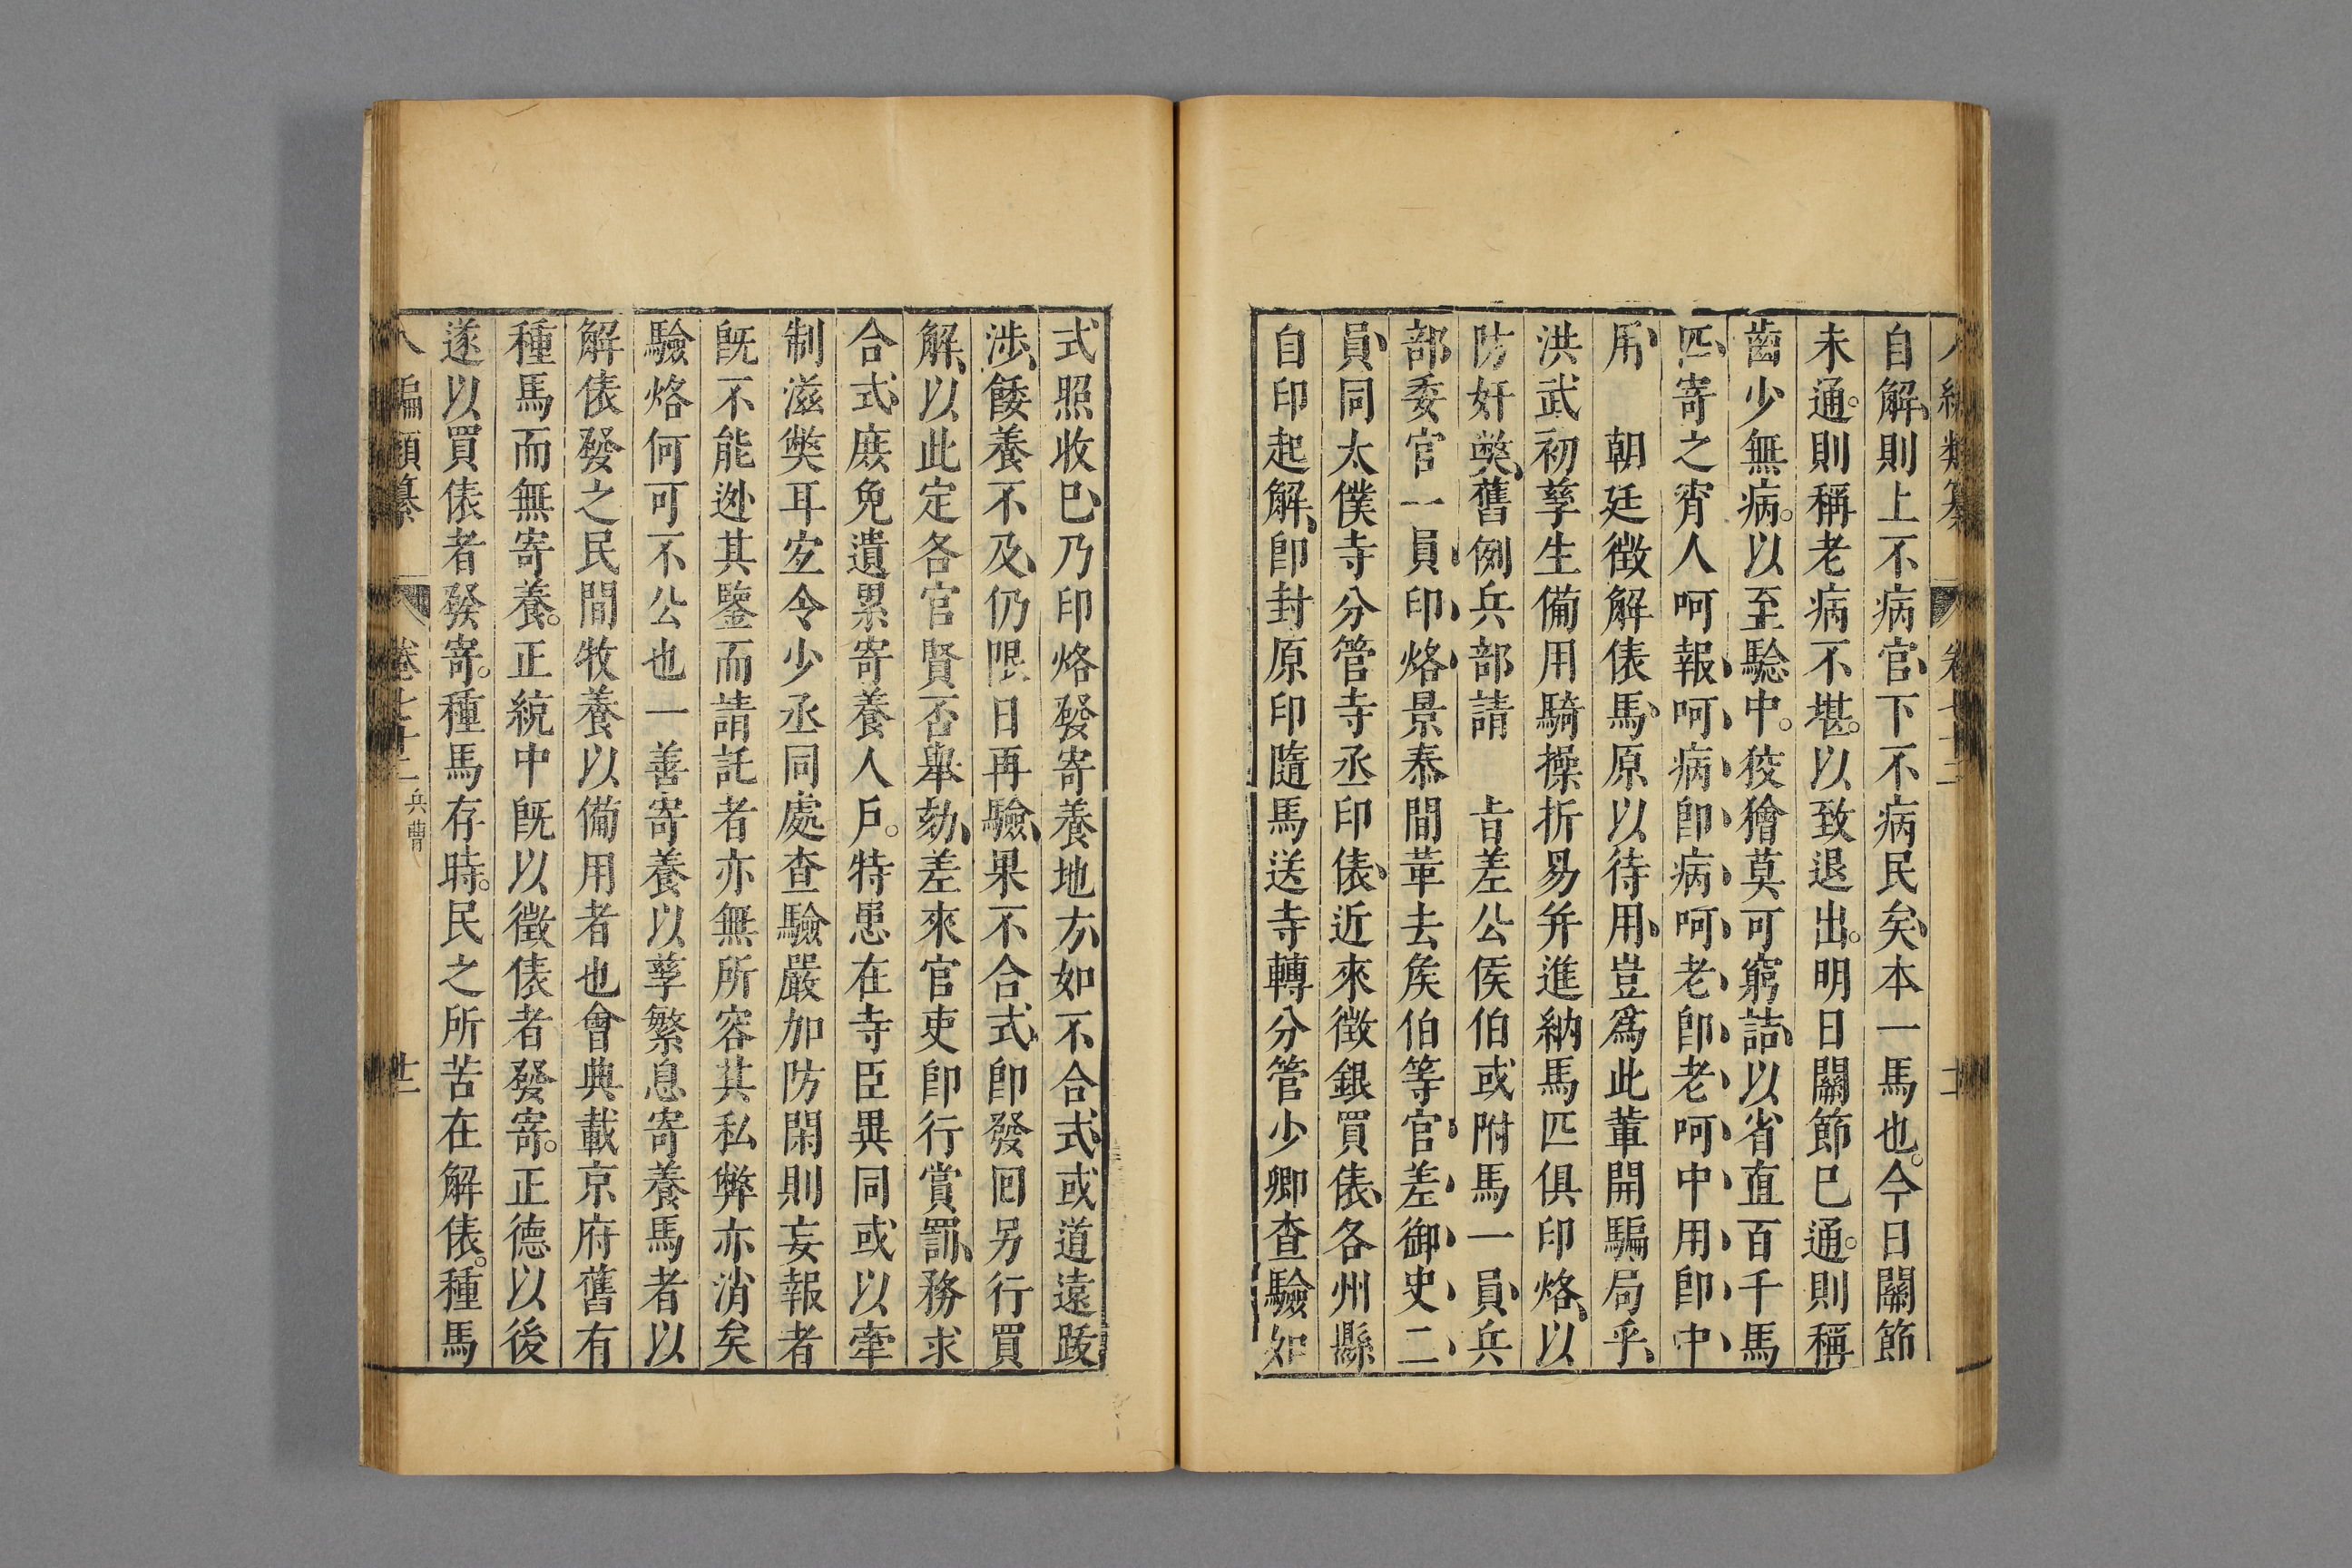 自解則上不病官下不病民矣本一馬也今日關節
未通則稱老病不堪以致退出明日關節已通則稱
齒少無病以至騐中狡獪莫可窮詰以省直百千馬
匹寄之宵人呵報呵病卽病呵老卽老呵中用卽中
用 朝廷徵解俵馬原以待用豈爲此輩開騙局乎
洪武初孳生備用騎操折易并進納馬匹俱印烙以
防奸獘舊例兵部請 旨差公侯伯或附馬一員兵
部委官一員印烙景泰間革去矦伯等官差御史二
員同太僕寺分管寺丞印俵近來徵銀買俵各州縣
自印起解卽封原印隨馬送寺轉分管少卿查驗如
式照收巳乃印烙發寄養地方如不合式或道遠跋
涉餧養不及仍限日再驗果不合式卽發回另行買
解以此定各官賢否舉劾差來官吏卽行賞罰務求
合式庶免遺累寄養人戶特患在寺臣異同或以牽
制滋獘耳定令少丞同處查驗嚴加防閑則妄報者
旣不能逊其鑒而請託者亦無所容其私弊亦消矣
驗烙何可不公也一善寄養以孳繁息寄養馬者以
解俵發之民間牧養以備用者也會典載京府舊有
種馬而無寄養正統中旣以徵俵者發寄正德以後
遂以買俵者發寄種馬存時民之所苦在解俵種馬
八編類纂 卷七十二 兵曹 廿二